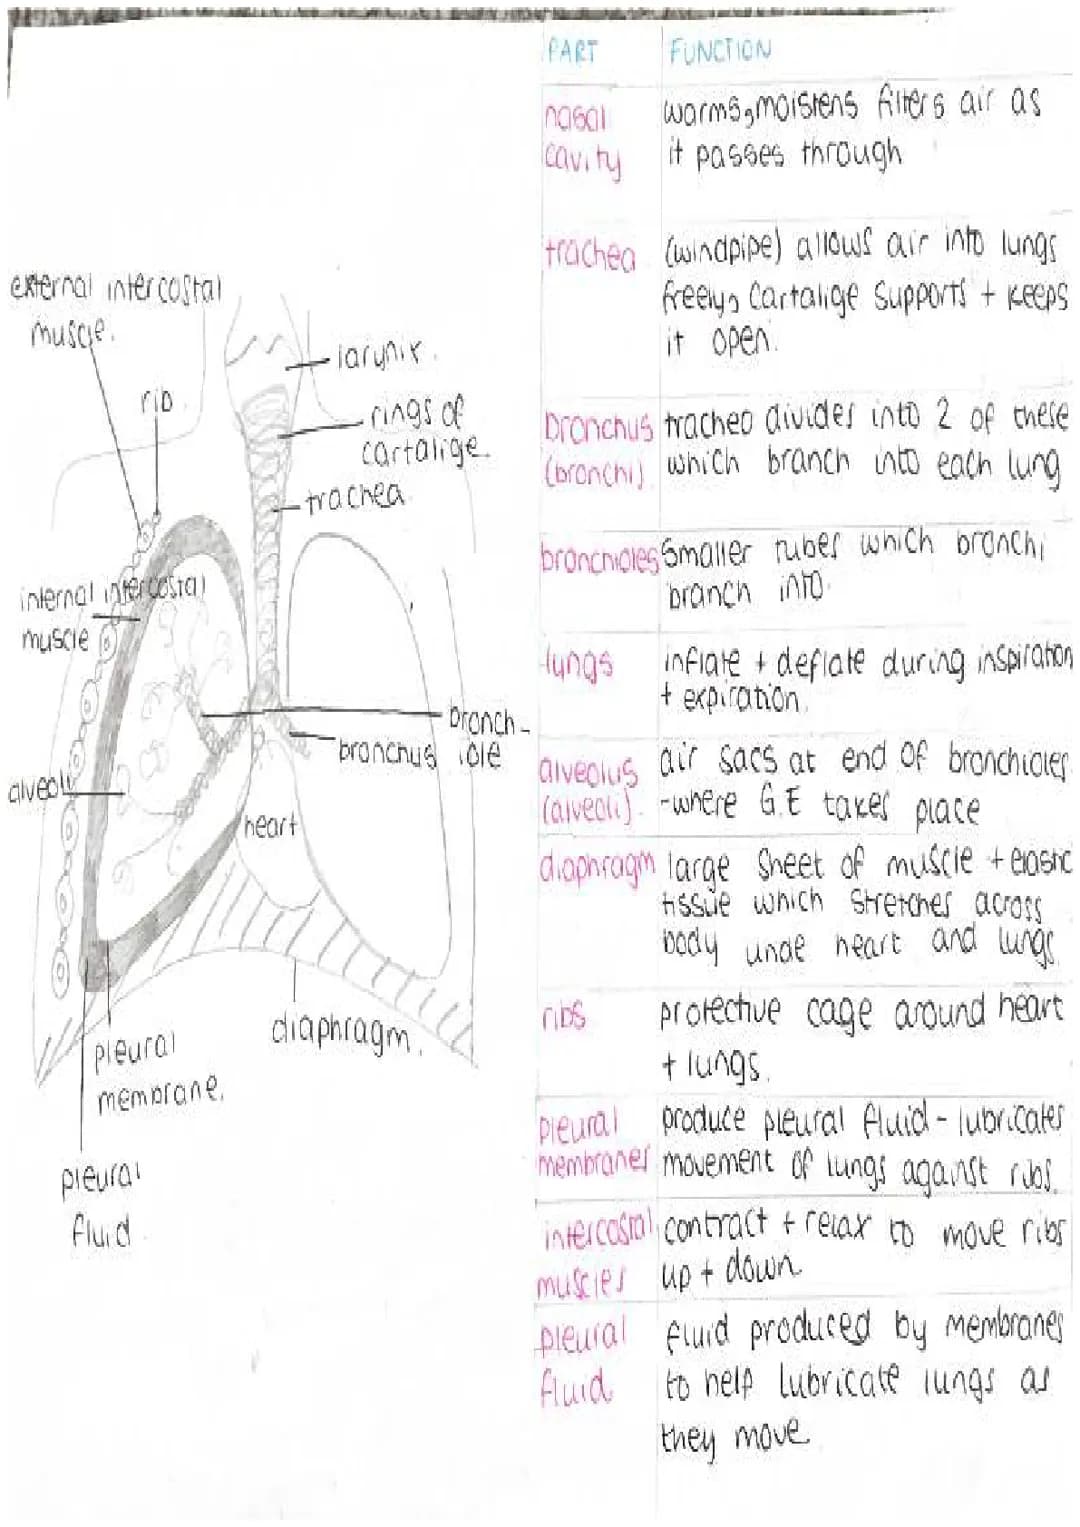 external intercostal
muscle.
rib
larynix.
rings of
cartalige.
trachea
internal intercostal
muscle
bronch-
iole
bronchus
alveoli
heart
diaphragm.
pleural
membrane.
pleural
fluid
PART FUNCTION
nasal warms, moistens filters air as
cavity it passes through
trachea (windpipe) allows air into lungs
freely, Cartalige supports + keeps
it open.
bronchus trachea divides into 2 of these
(bronchi) which branch into each lung
bronchioles smaller tubes which bronchi
branch into.
lungs inflate + deflate during inspiration
+ expiration.
alveolus air sacs at end of bronchioles
(alveoli). -where G.E takes place
diaphragm large sheet of muscle + elastic
tissue which stretches across
body unde heart and lungs.
ribs protective cage around heart
+ lungs.
pleural produce pleural fluid - lubricates
membranes movement of lungs against ribs.
intercostal contract + relax to move ribs
muscles up + down
pleural fluid produced by membranes
fluid to help lubricate lungs as
they move